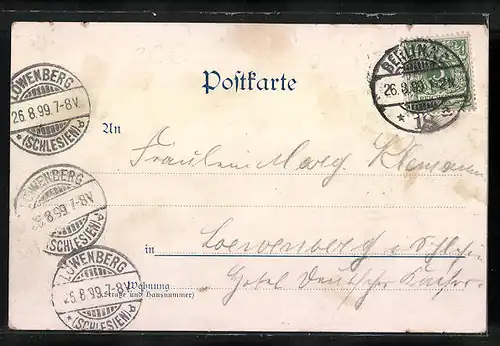 BERLIN
26.8.99. 1-2N.
* 18 a
LÖWENBERG
26.8.99.7-8V.
* (SCHLESIEN) a
Postkarte
An
Fräulein Marg. Klemann
LÖWENBERG
26.8.99.7-8V.
(SCHLESIEN) a
in Loewenberg i. Schlesien
Hotel Deutscher Kaiser.
LÖWENBERG
26.8.99.7-8V.
* (SCHLESIEN) a
Wohnung
(Straße und Hausnummer)